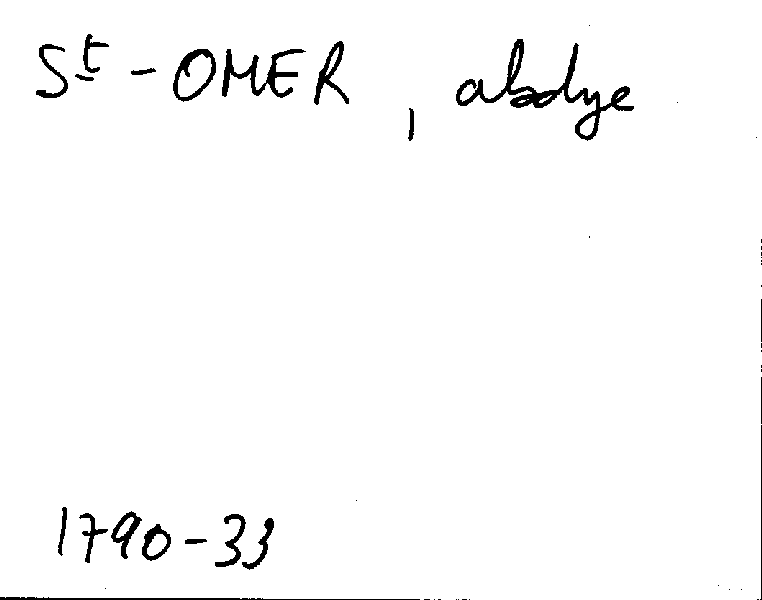 St-OMER, abdye
1790-33